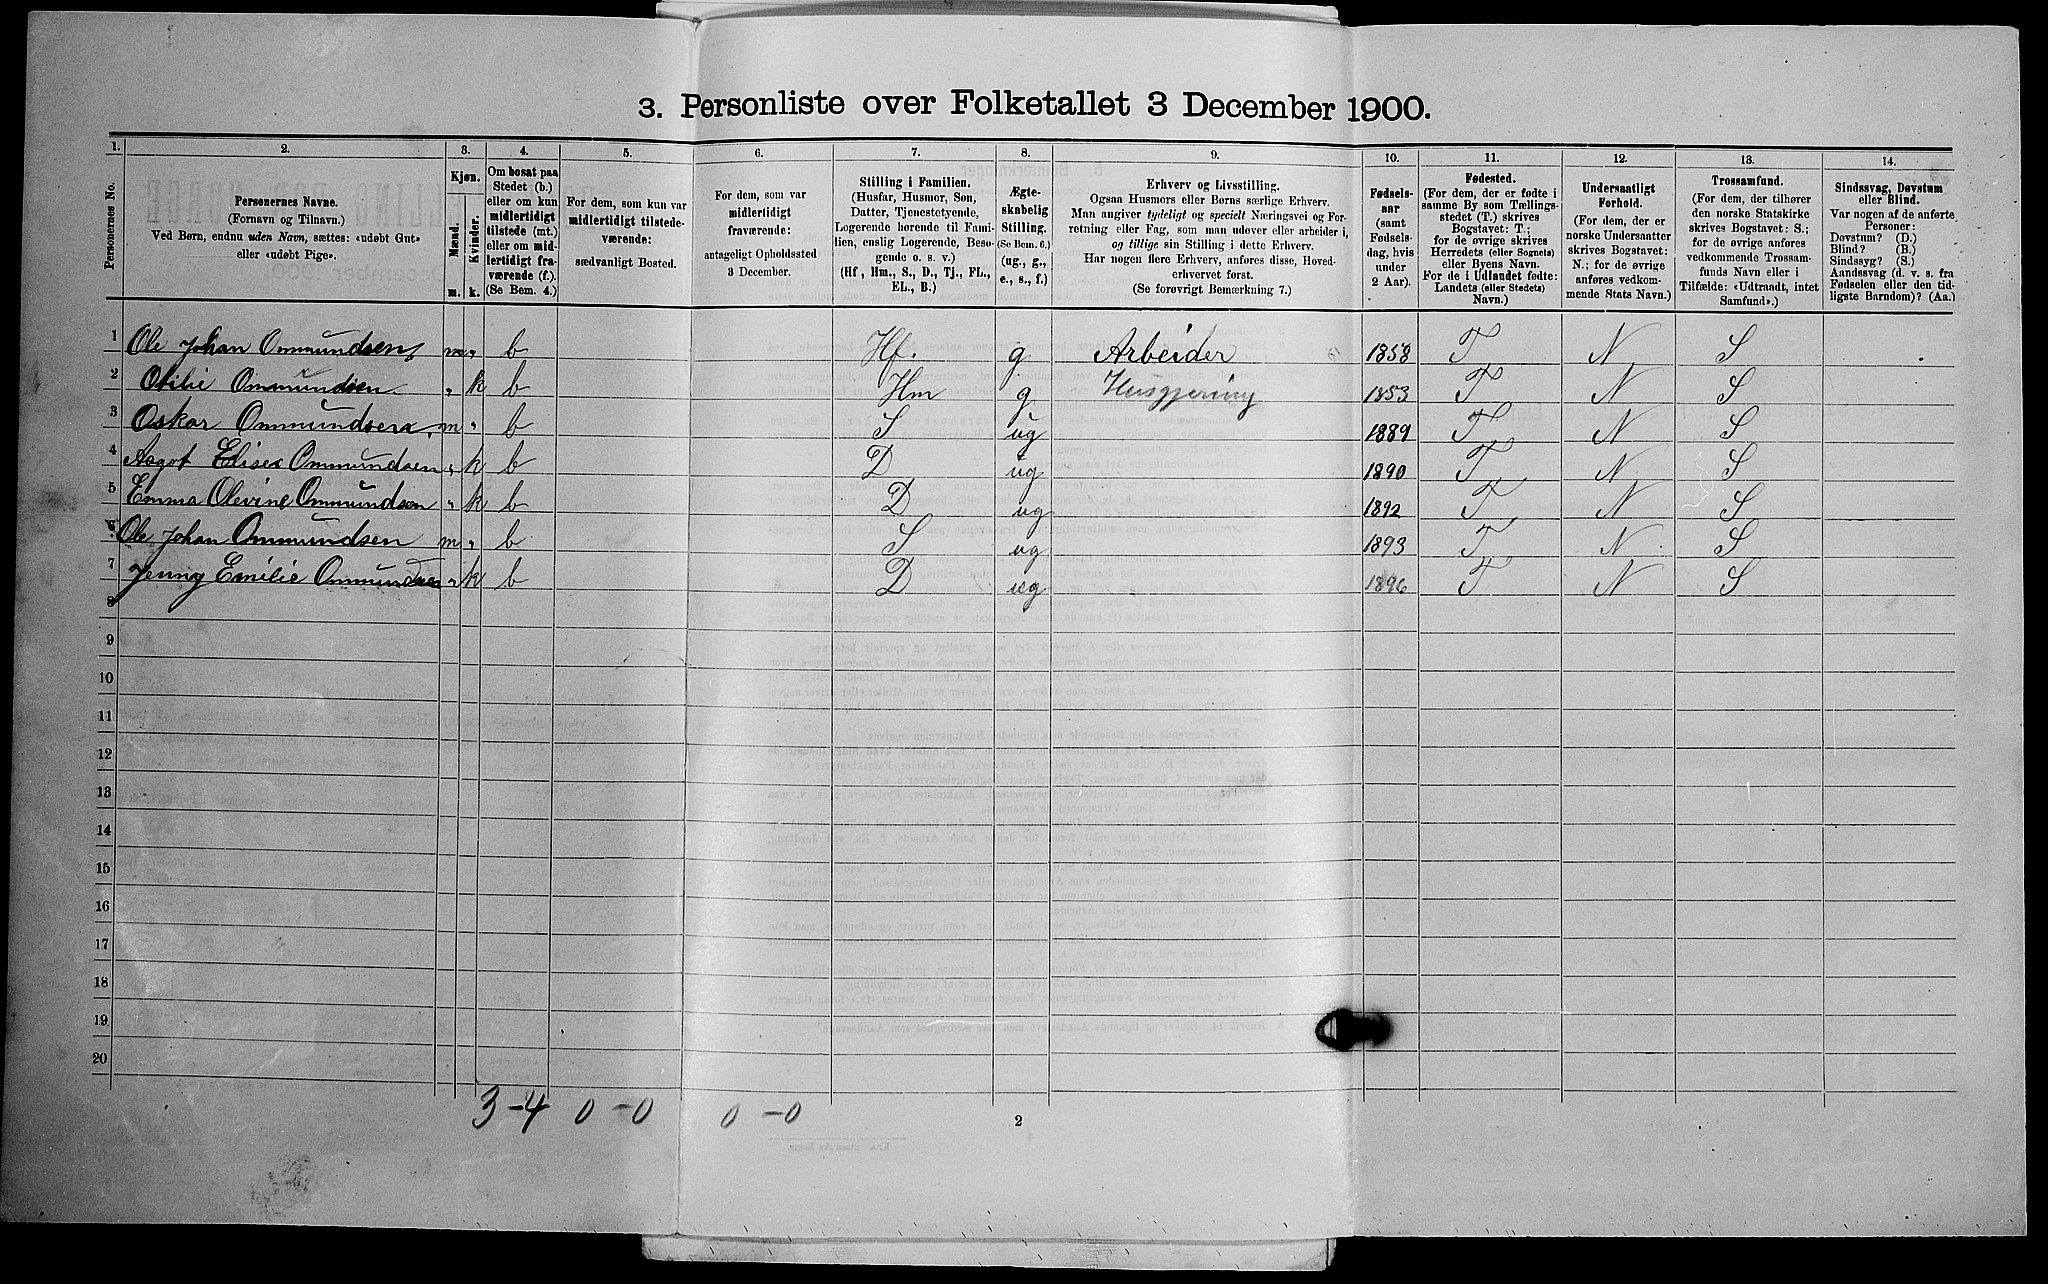 3. Personliste over Folketallet 3 December 1900.
1. 2. 3. 4. 5. 6. 7. 8. 9. 10. 11. 12. 13. 14.
Personernes No.
Personernes Navne.
(Fornavn og Tilnavn.)
Ved Børn, endnu uden Navn, sættes: «udøbt Gut»
eller «udøbt Pige».
Kjøn.
Mænd.
Kvinder.
m. k.
Om bosat paa
Stedet (b.)
eller om kun
midlertidigt
tilstede (mt.)
eller om mid-
lertidigt fra-
værende (f.).
(Se Bem. 4.)
For dem, som kun var
midlertidigt tilstede-
værende:
sædvanligt Bosted.
For dem, som var
midlertidigt
fraværende:
antageligt Opholdssted
3 December.
Stilling i Familien.
(Husfar, Husmor, Søn,
Datter, Tjenestetyende,
Logerende hørende til Fami-
lien, enslig Logerende, Besø-
gende o. s. v.)
(Hf., Hm., S., D., Tj., FL.,
EL., B.)
Ægte-
skabelig
Stilling.
(Se Bem. 6.)
(ug., g.,
e., s., f.)
Erhverv og Livsstilling.
Ogsaa Husmors eller Børns særlige Erhverv.
Man angiver tydeligt og specielt Næringsvei og For-
retning eller Fag, som man udøver eller arbeider i,
og tillige sin Stilling i dette Erhverv.
Har nogen flere Erhverv, anføres disse, Hoved-
erhvervet først.
(Se forøvrigt Bemærkning 7.)
Fødsels-
aar
(samt
Fødsels-
dag, hvis
under
2 Aar).
Fødested.
(For dem, der er fødte i
samme By som Tællings-
stedet (T.) skrives
Bogstavet: T.;
for de øvrige skrives
Herredets (eller Sognets)
eller Byens Navn.
For de i Udlandet fødte:
Landets (eller Stedets)
Navn.)
Undersaatligt
Forhold.
(For dem, der er
norske Undersaatter
skrives Bogstavet:
N.; for de øvrige
anføres vedkom-
mende Stats Navn.)
Trossamfund.
(For dem, der tilhører
den norske Statskirke
skrives Bogstavet: S.;
for de øvrige anføres
vedkommende Trossam-
funds Navn eller i
Tilfælde: «Udtraadt, intet
Samfund».)
Sindssvag, Døvstum
eller Blind.
Var nogen af de anførte
Personer:
Døvstum? (D.)
Blind? (B.)
Sindssyg? (S.)
Aandssvag (d. v. s. fra
Fødselen eller den tid-
ligste Barndom)? (Aa.)
1 Ole Johan Ommundsen m „ b Hf. g Arbeider 1858 T N S
2 Otilie Ommundsen „ k b Hm g Husgjerning 1853 T N S
3 Oskar Ommundsen m „ b S ug 1889 T N S
4 Aagot Elise Ommundsen „ k b D ug 1890 T N S
5 Emma Olevine Ommundsen „ k b D ug 1892 T N S
6 Ole Johan Ommundsen m „ b S ug 1893 T N S
7 Jenny Emilie Ommundsen „ k b D ug 1896 T N S
8
9
10
11
12
13
14
15
16
17
18
19
20
3-4 0-0 0-0
2